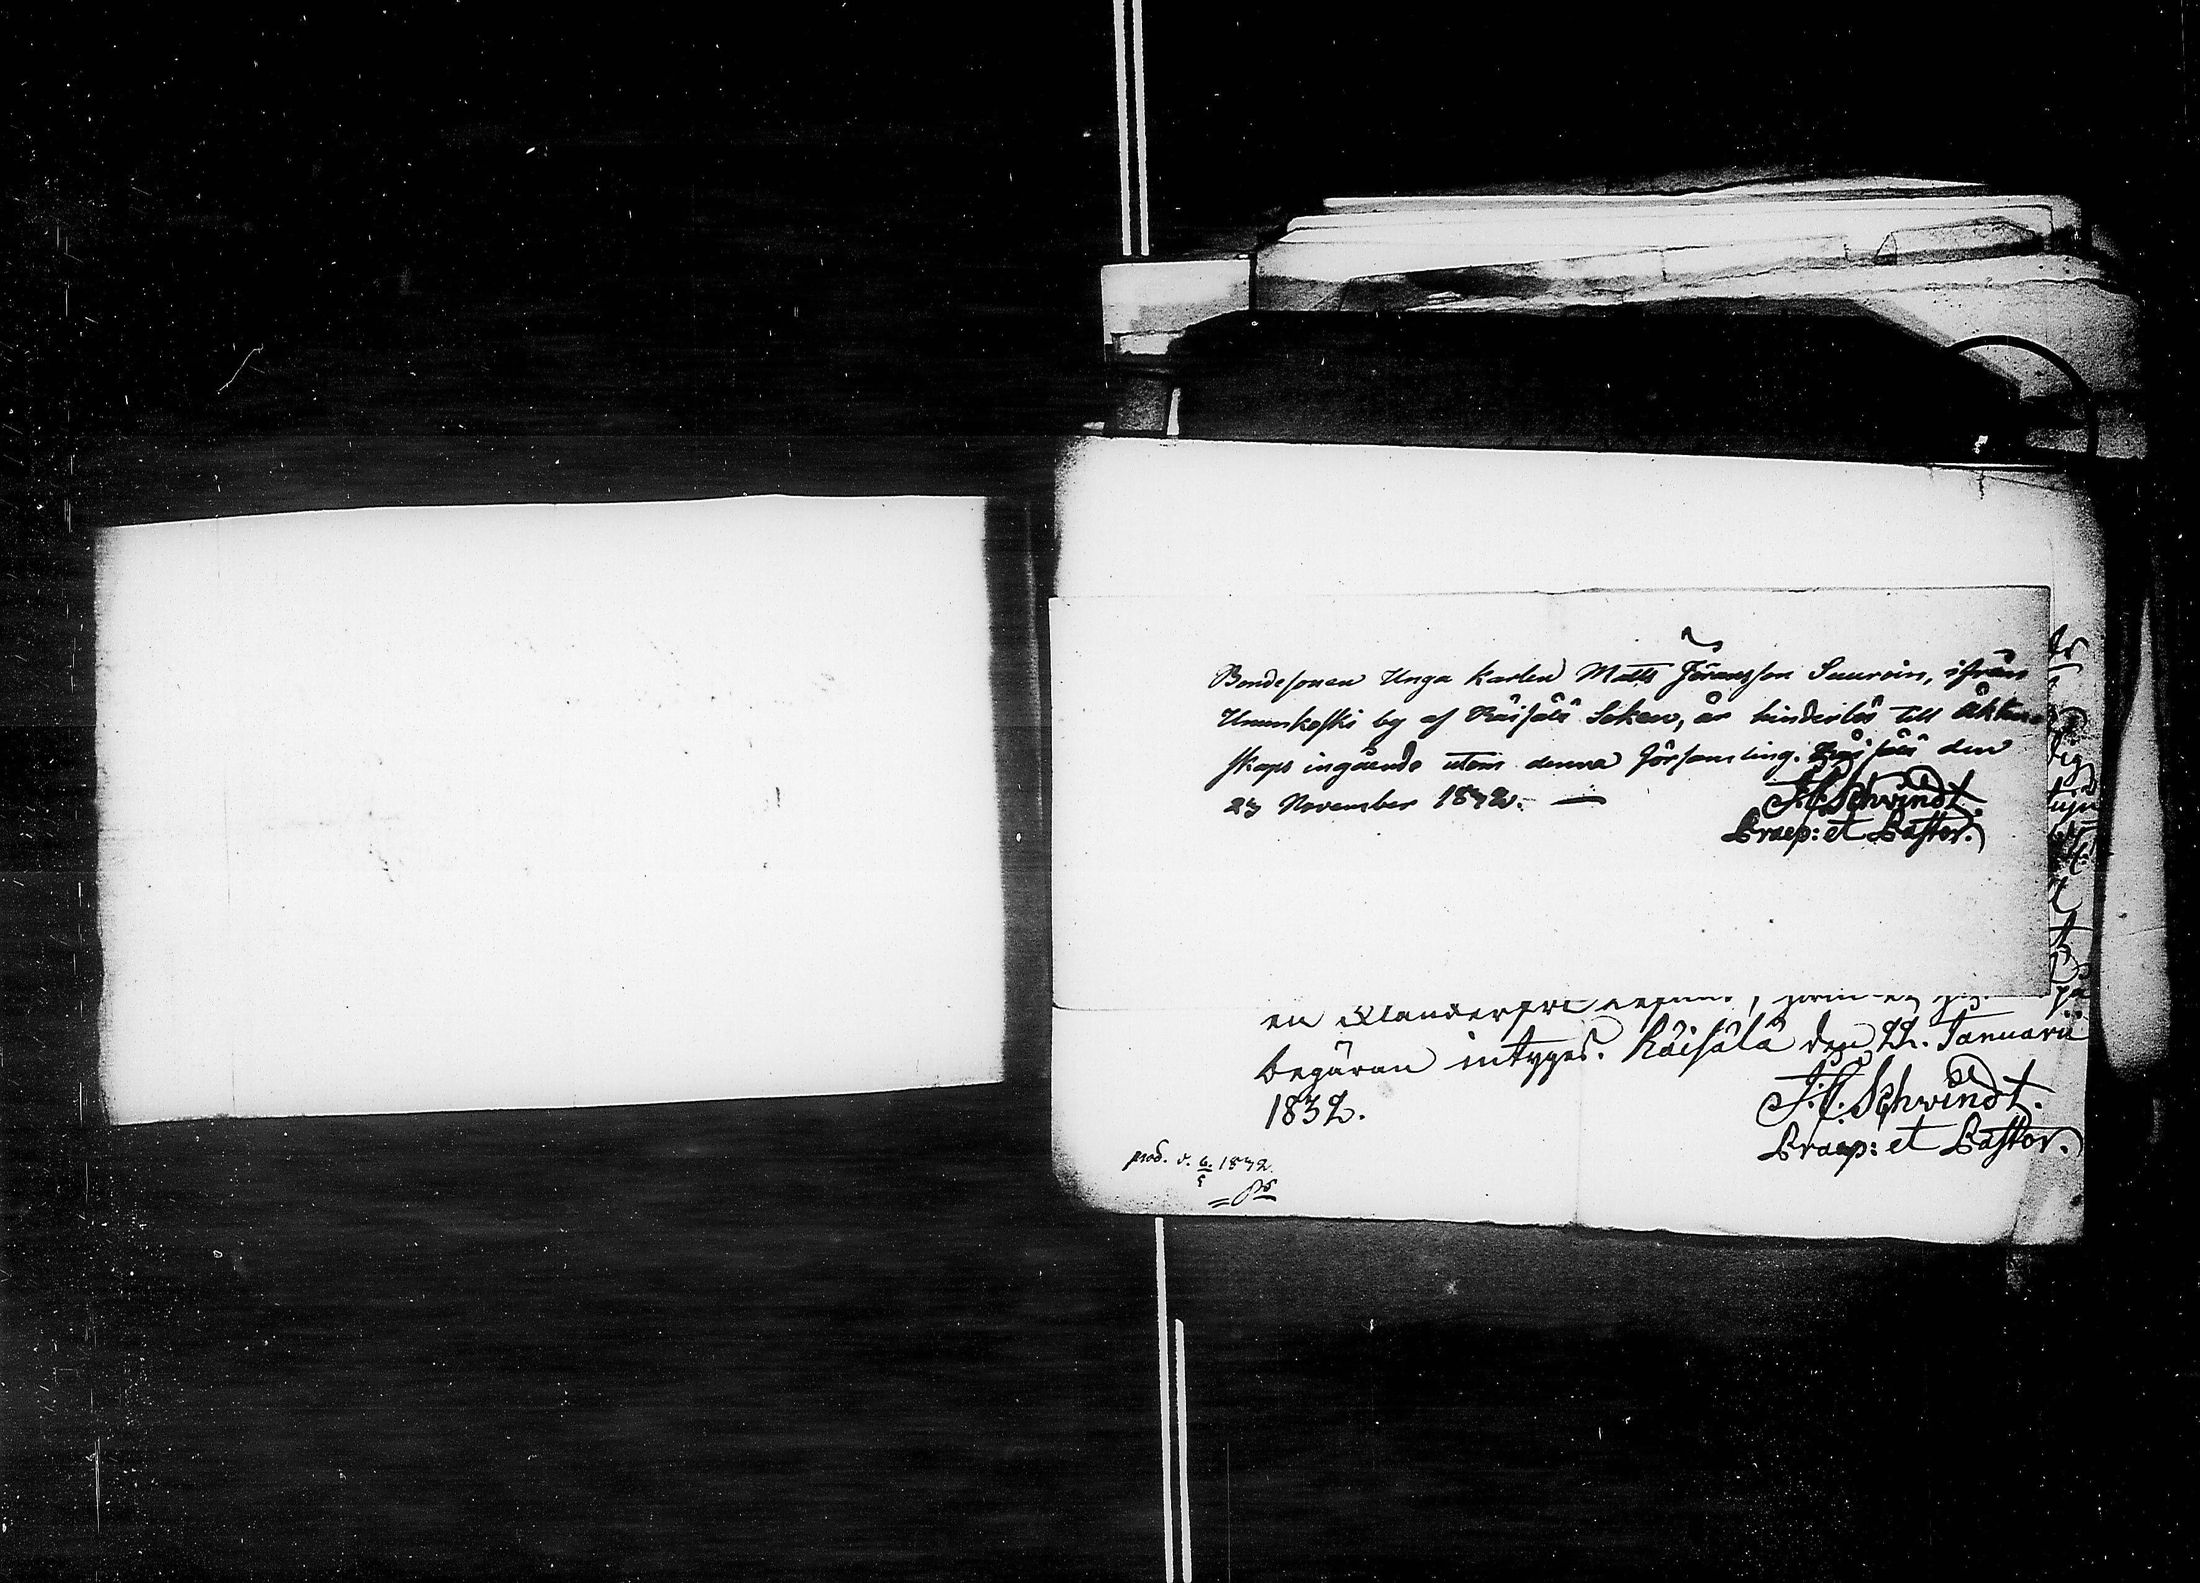 Bondesonen Unga Karlen Matts Göransson Suuroin, ifrån
Unnunkoski by af Räisälä Soken, är hinderlös till äkten-
skaps ingående utom denna Församling. Räisälä den
23 November 1832. —
J. C. Schvindt.
Praep: et Pastor.
begäran intyges. Räisälä den 22. Januarii
1832.
J. C. Schvindt.
Praep: et Pastor.
prod. d. 6/5 1832.